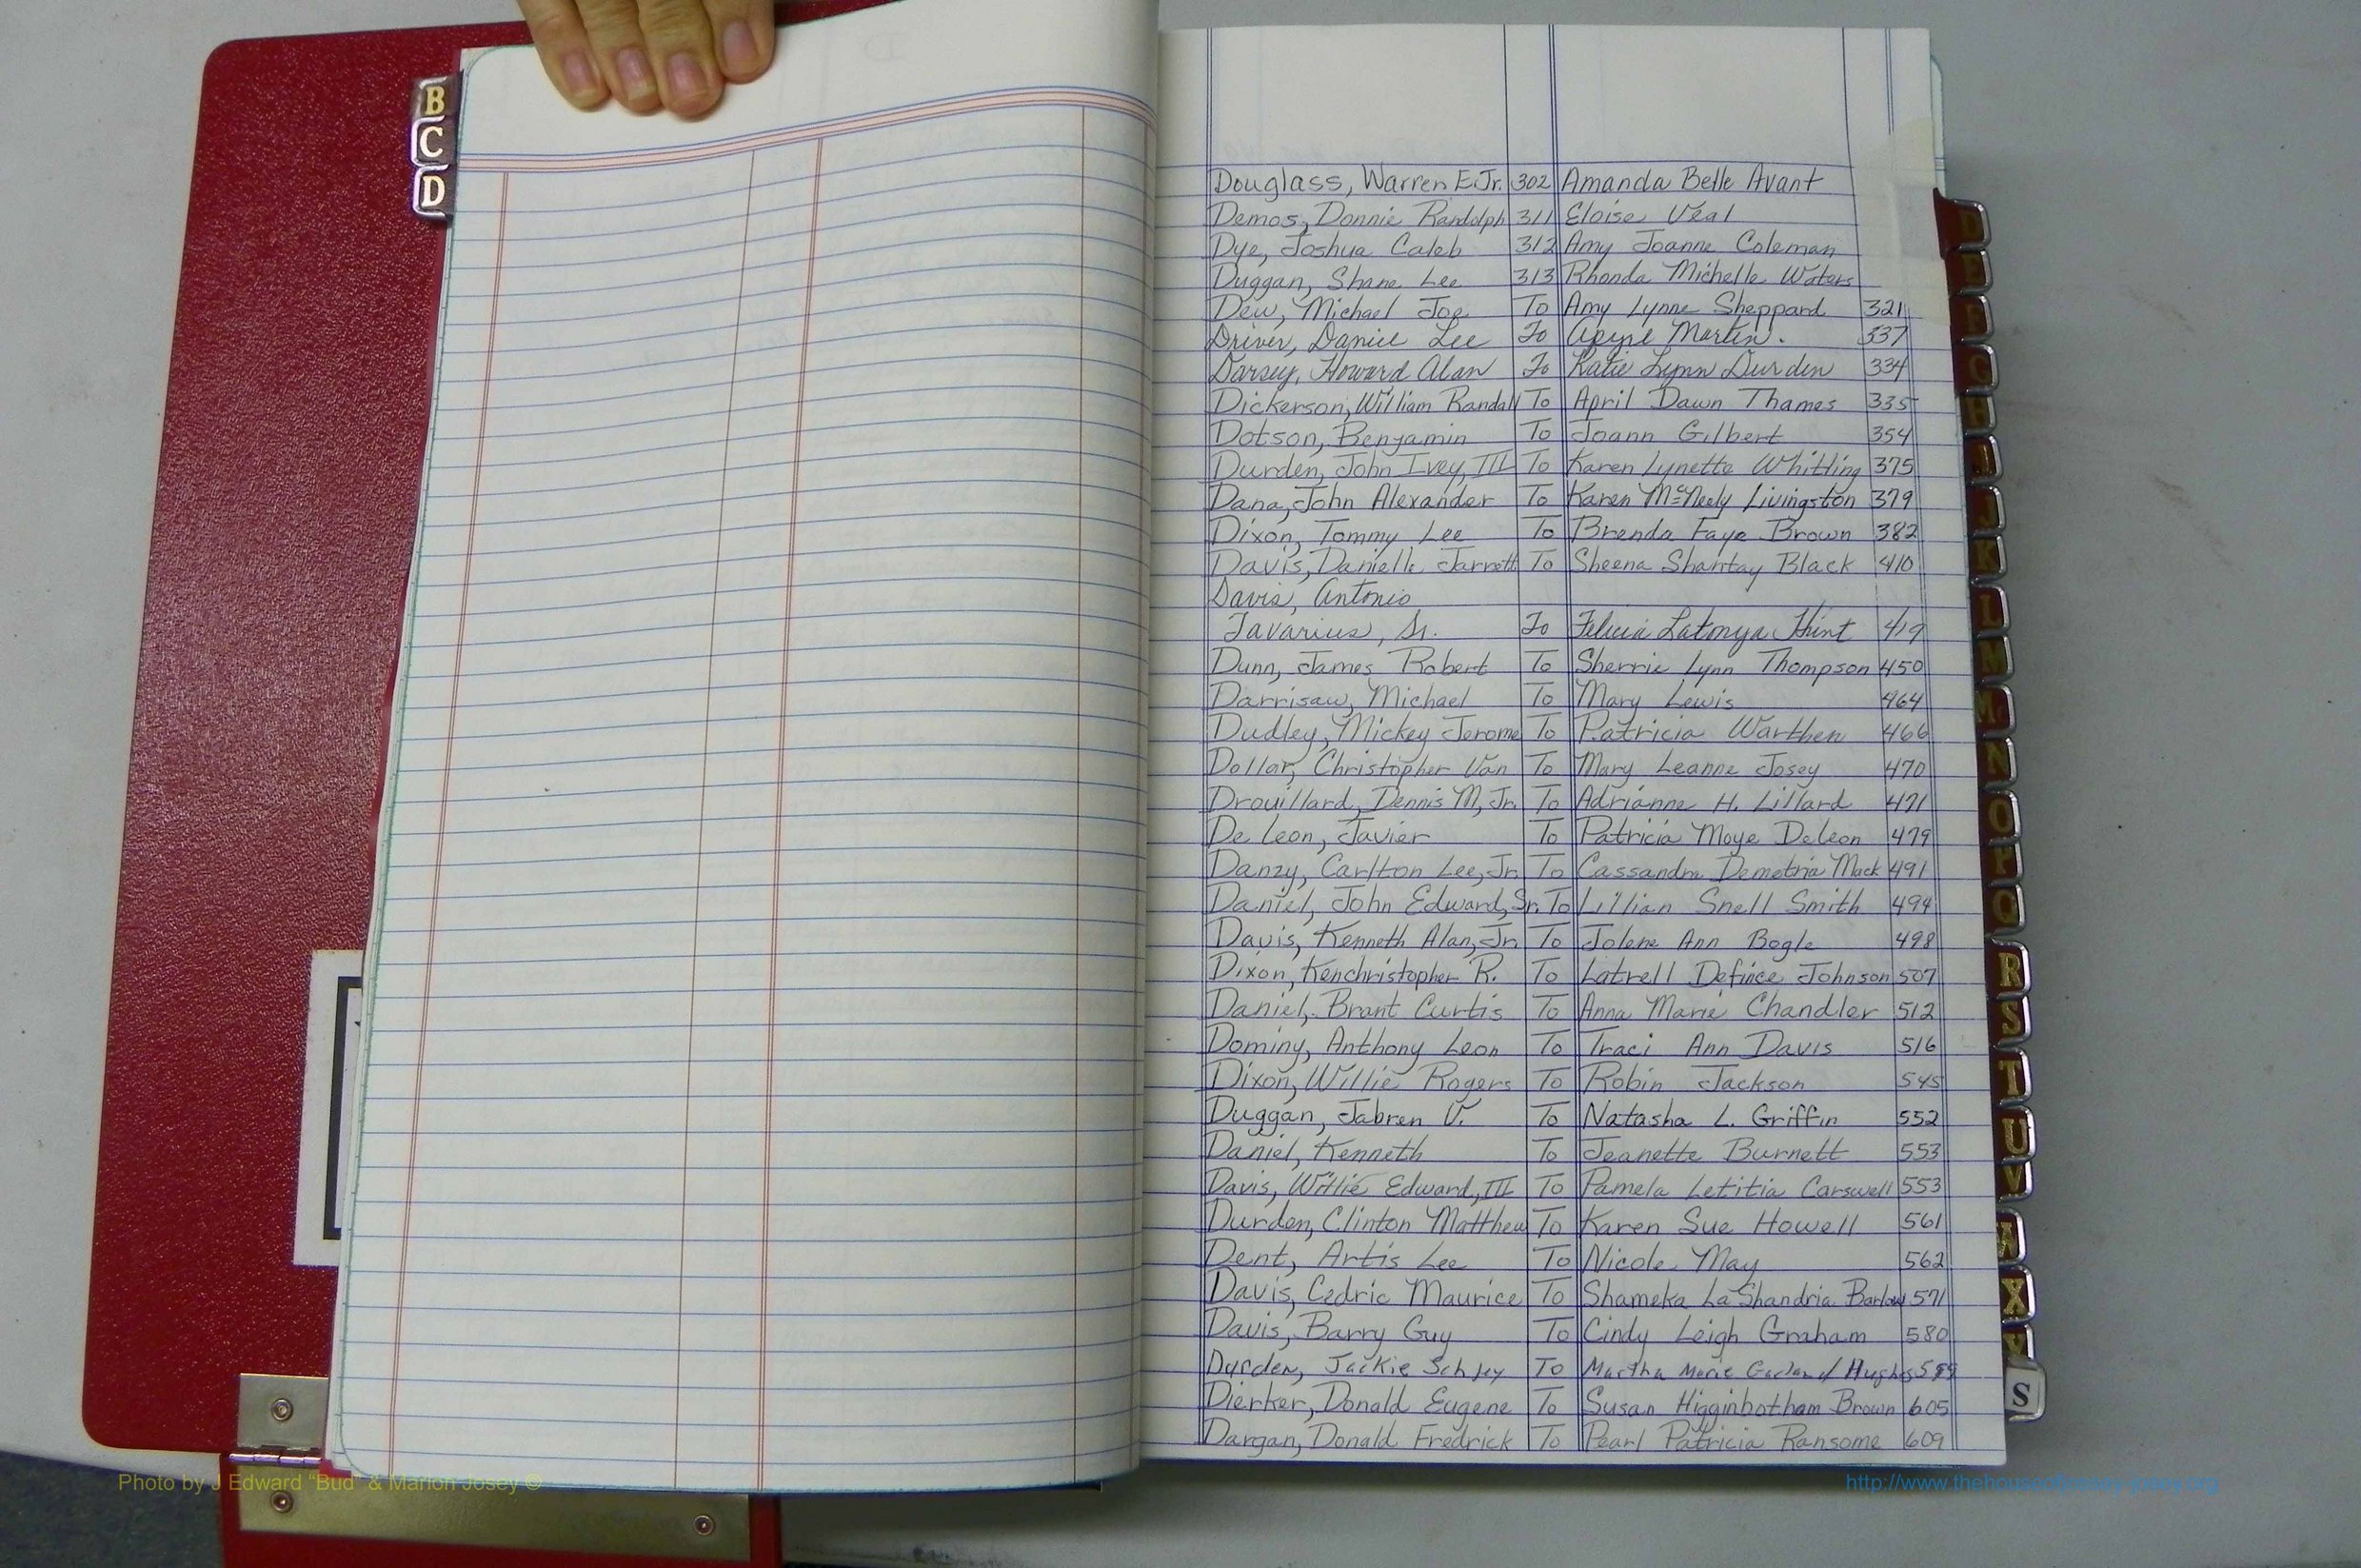 B
C
D
Douglass, Warren E. Jr. 302 Amanda Belle Avant
Demos, Donnie Randolph 311 Eloise Veal
Dye, Joshua Caleb 312 Amy Joanne Coleman
Duggan, Shane Lee 313 Rhonda Michelle Waters
Dew, Michael Joe To Amy Lynne Sheppard 321
Driver, Daniel Lee To Martin. 337
Darsey, Howard Alan To Katie Lynn Durden 334
Dickerson, William Randall To April Dawn Thames 335
Dotson, Benjamin To Joann Gilbert 354
Durden, John Ivey, III To Karen Lynette Whitling 375
Dana, John Alexander To Karen McNeely Livingston 379
Dixon, Tommy Lee To Brenda Faye Brown 382
Davis, Danielle Jarrett To Sheena Shantay Black 410
Davis, Antonio
Tavarius, Sr. To Felicia Latonya Hunt 419
Dunn, James Robert To Sherrie Lynn Thompson 450
Darrisaw, Michael To Mary Lewis 464
Dudley, Mickey Jerome To Patricia Warthen 466
Dollar, Christopher Van To Mary Leanne Josey 470
Drouillard, Dennis M, Jr. To Adrianne H. Lillard 471
De Leon, Javier To Patricia Moye Deleon 479
Danzy, Carlton Lee, Jr. To Cassandra Demetria Mack 491
Daniel, John Edward, Sr. To Lillian Snell Smith 494
Davis, Kenneth Alan, Jr. To Jolene Ann Bogle 498
Dixon, Kenchristopher R. To Latrell Defince Johnson 507
Daniel, Brant Curtis To Anna Marie Chandler 512
Dominy, Anthony Leon To Traci Ann Davis 516
Dixon, Willie Rogers To Robin Jackson 545
Duggan, Jabren V. To Natasha L. Griffin 552
Daniel, Kenneth To Jeanette Burnett 553
Davis, Willie Edward, III To Pamela Letitia Carswell 553
Durden, Clinton Matthew To Karen Sue Howell 561
Dent, Artis Lee To Nicole May 562
Davis, Cedric Maurice To Shameka LaShandria Barlow 571
Davis, Barry Guy To Cindy Leigh Graham 580
Durden, Jackie Schley To Martha Marie Garland Hughes
Dierker, Donald Eugene To Susan Higginbotham Brown 605
Dargan, Donald Fredrick To Pearl Patricia Ransome 609
D
E
F
G
H
I
J
K
L
M
Mc
N
O
P
Q
R
S
T
U
V
W
X
Y
S
Photo by J Edward "Bud" & Marion Josey ©